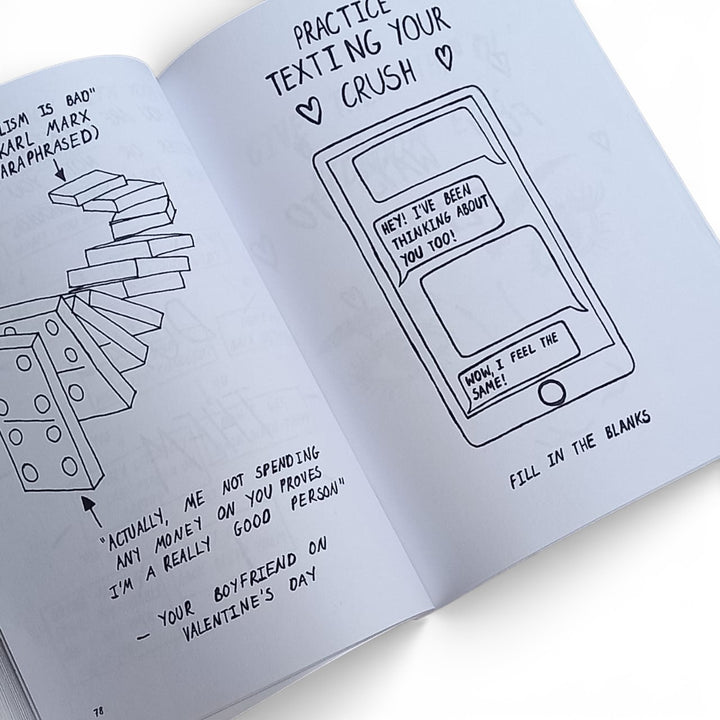 LISM IS BAD"
KARL MARX
ARAPHRASED)
"ACTUALLY, ME NOT SPENDING
ANY MONEY ON YOU PROVES
I'M A REALLY GOOD PERSON"
— YOUR BOYFRIEND ON
VALENTINE'S DAY
78
PRACTICE
TEXTING YOUR
CRUSH
HEY! I'VE BEEN
THINKING ABOUT
YOU TOO!
WOW, I FEEL THE
SAME!
FILL IN THE BLANKS